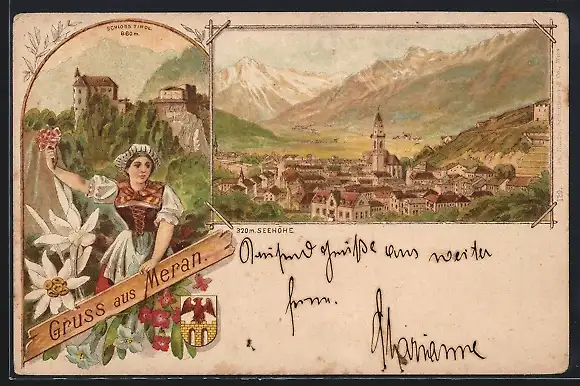 SCHLOSS TIROL.
860 m.
320 m. SEEHÖHE.
Gruss aus Meran.
Tausend Grüße aus weiter
Ferne.
Marianne